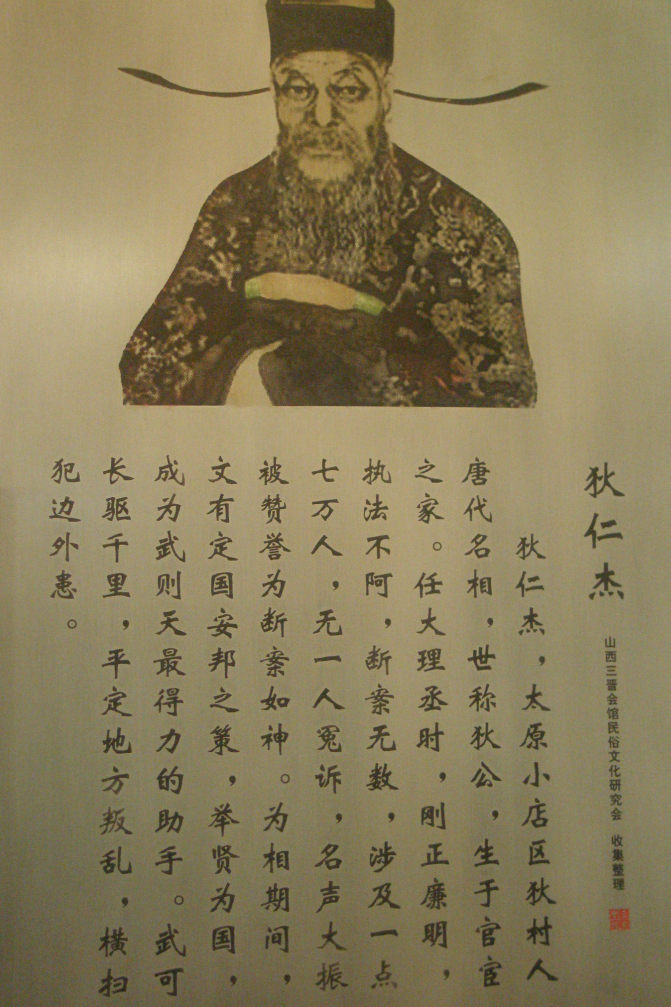 狄仁杰
山西三晋会馆民俗文化研究会 收集整理
狄仁杰，太原小店区狄村人
唐代名相，世称狄公，生于官宦
之家。任大理丞时，刚正廉明，
执法不阿，断案无数，涉及一点
七万人，无一人冤诉，名声大振
被赞誉为断案如神。为相期间，
文有定国安邦之策，举贤为国，
成为武则天最得力的助手。武可
长驱千里，平定地方叛乱，横扫
犯边外患。